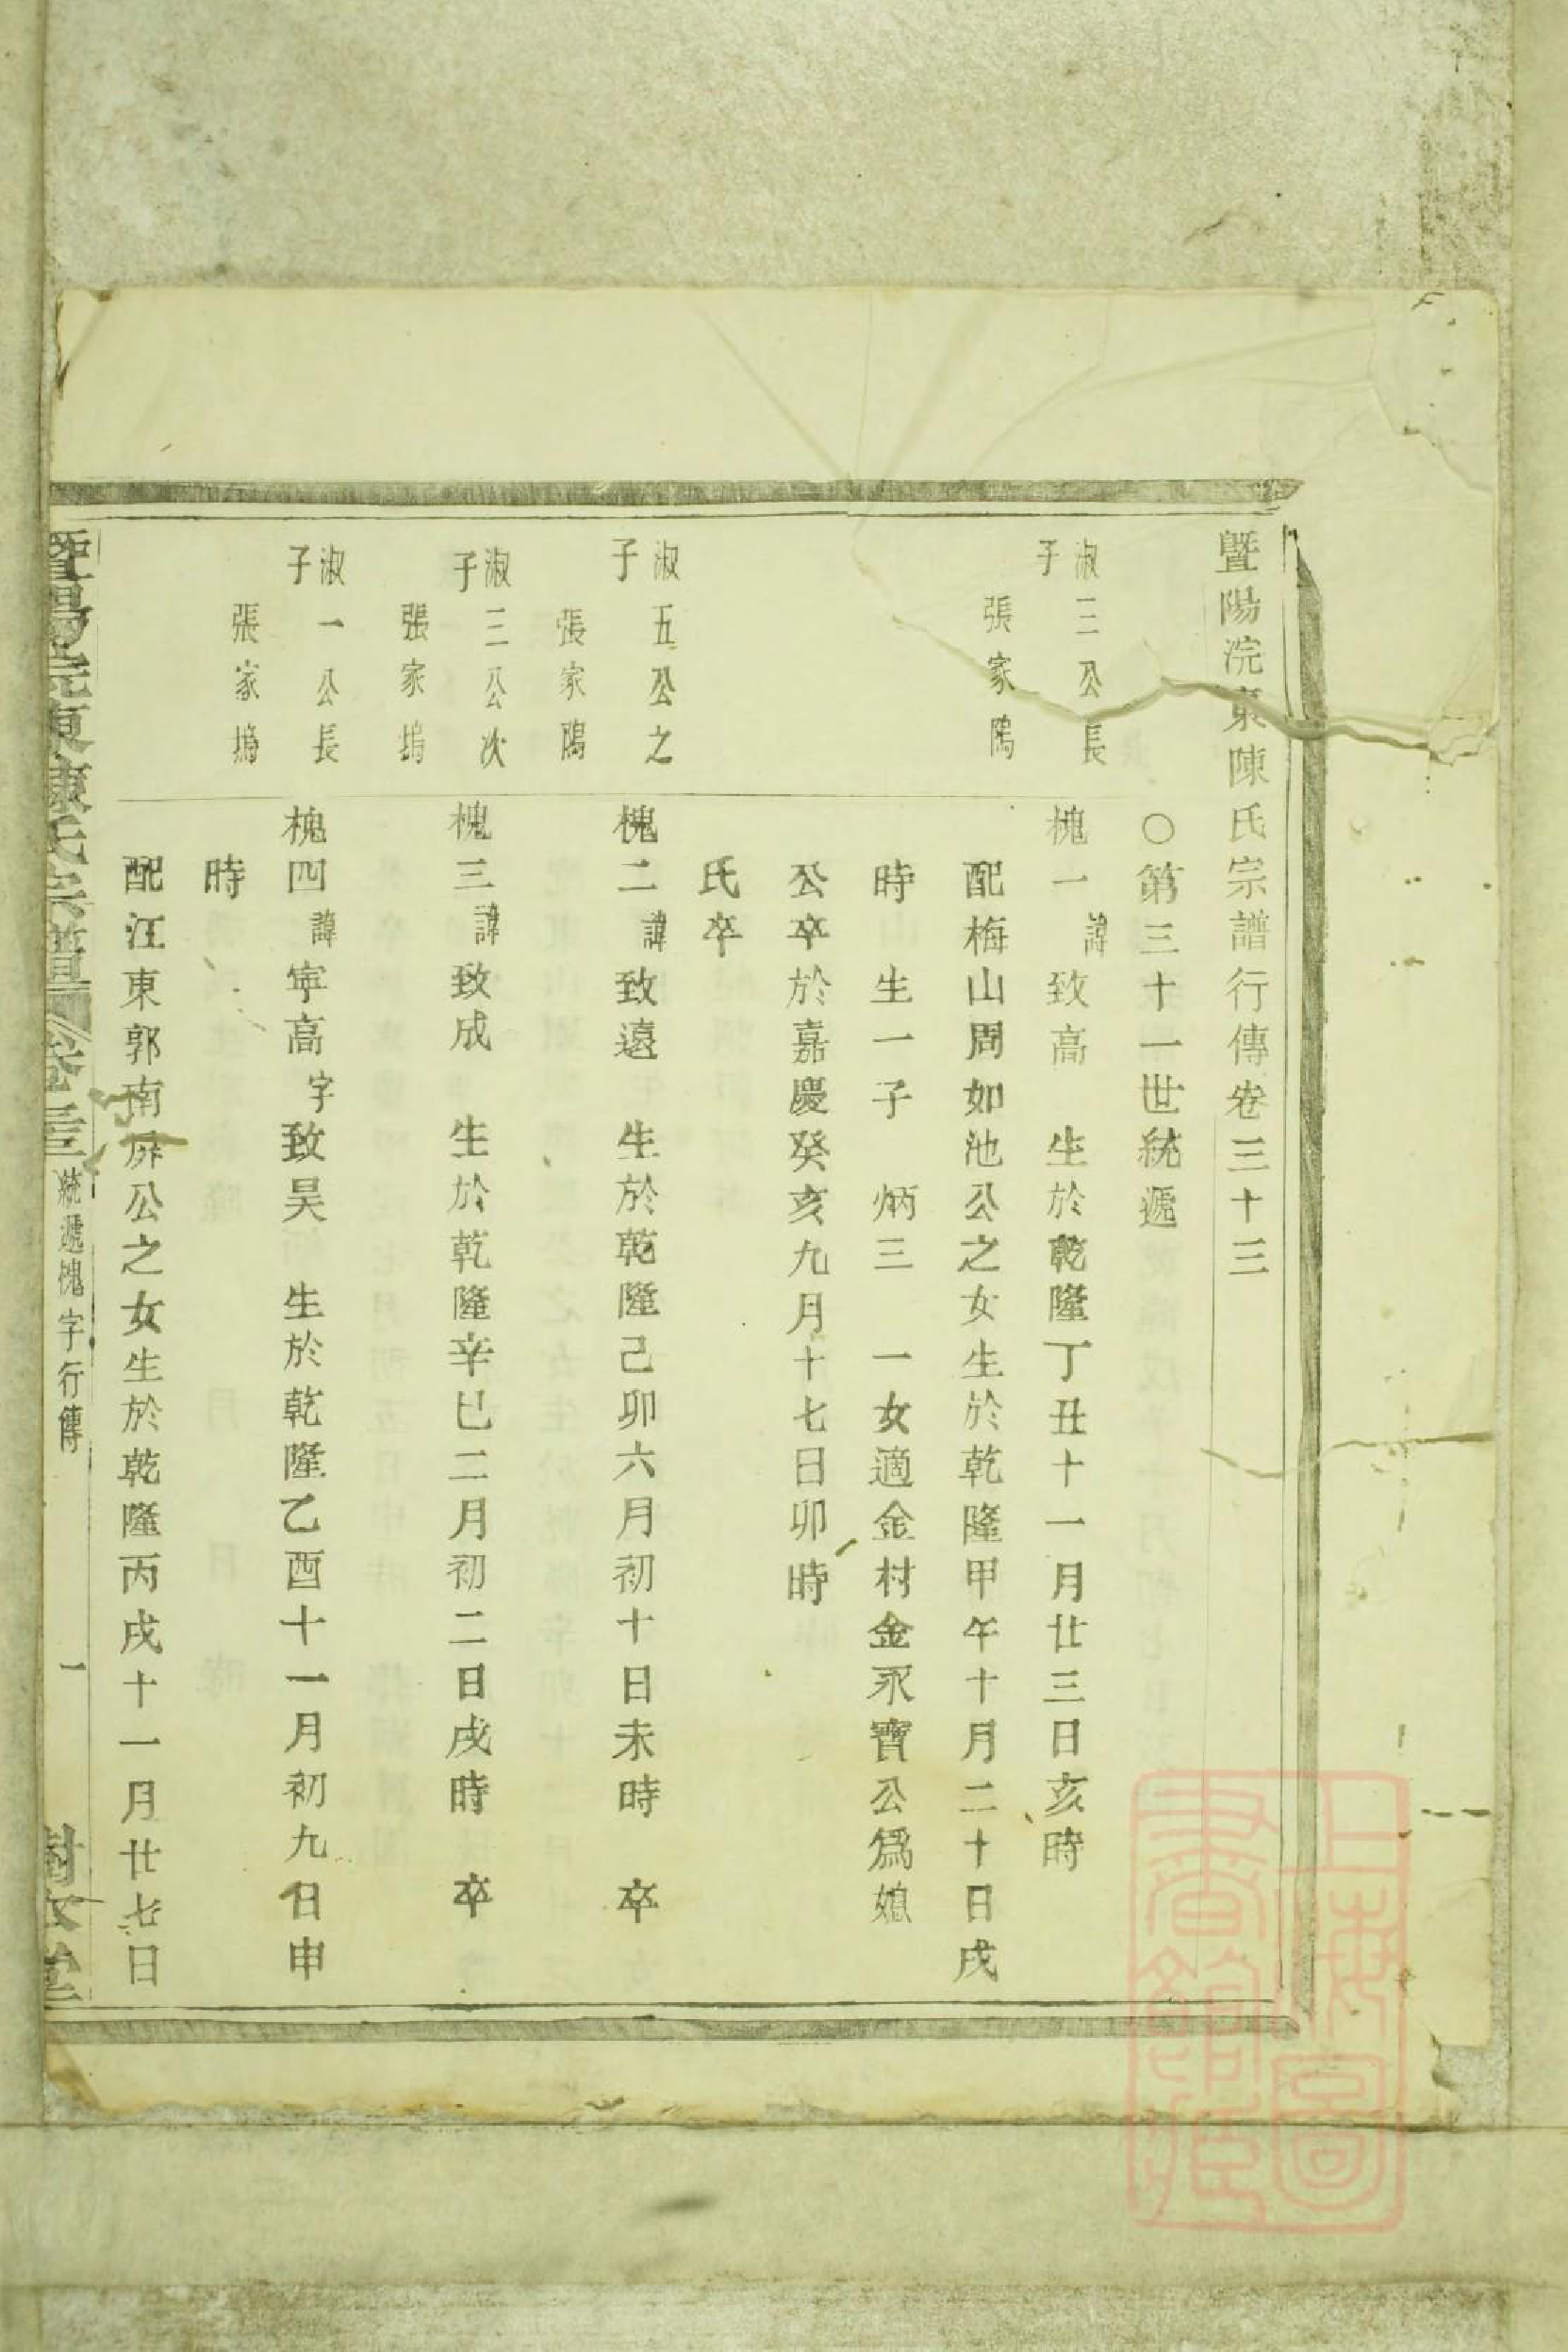 暨陽浣東陳氏宗譜行傳卷三十三
○第三十一世統遞
淑三公長
子
張家隖
槐一諱致高 生於乾隆丁丑十一月廿三日亥時
配梅山周如池公之女生於乾隆甲午十月二十日戌
時 生一子 炳三 一女適金村金永寶公爲媳
公卒於嘉慶癸亥九月十七日卯時
氏卒
淑五公之
子
張家隖
槐二諱致遠 生於乾隆己卯六月初十日未時 卒
淑三公次
子
張家塢
槐三諱致成 生於乾隆辛巳二月初二日戌時 卒
淑一公長
子
張家塢
槐四諱寧高字致昊 生於乾隆乙酉十一月初九日申
時
配江東郭南屏公之女生於乾隆丙戌十一月廿七日
暨陽浣東陳氏宗譜 卷三十三 統遞槐字行傳 一
上海圖書館藏